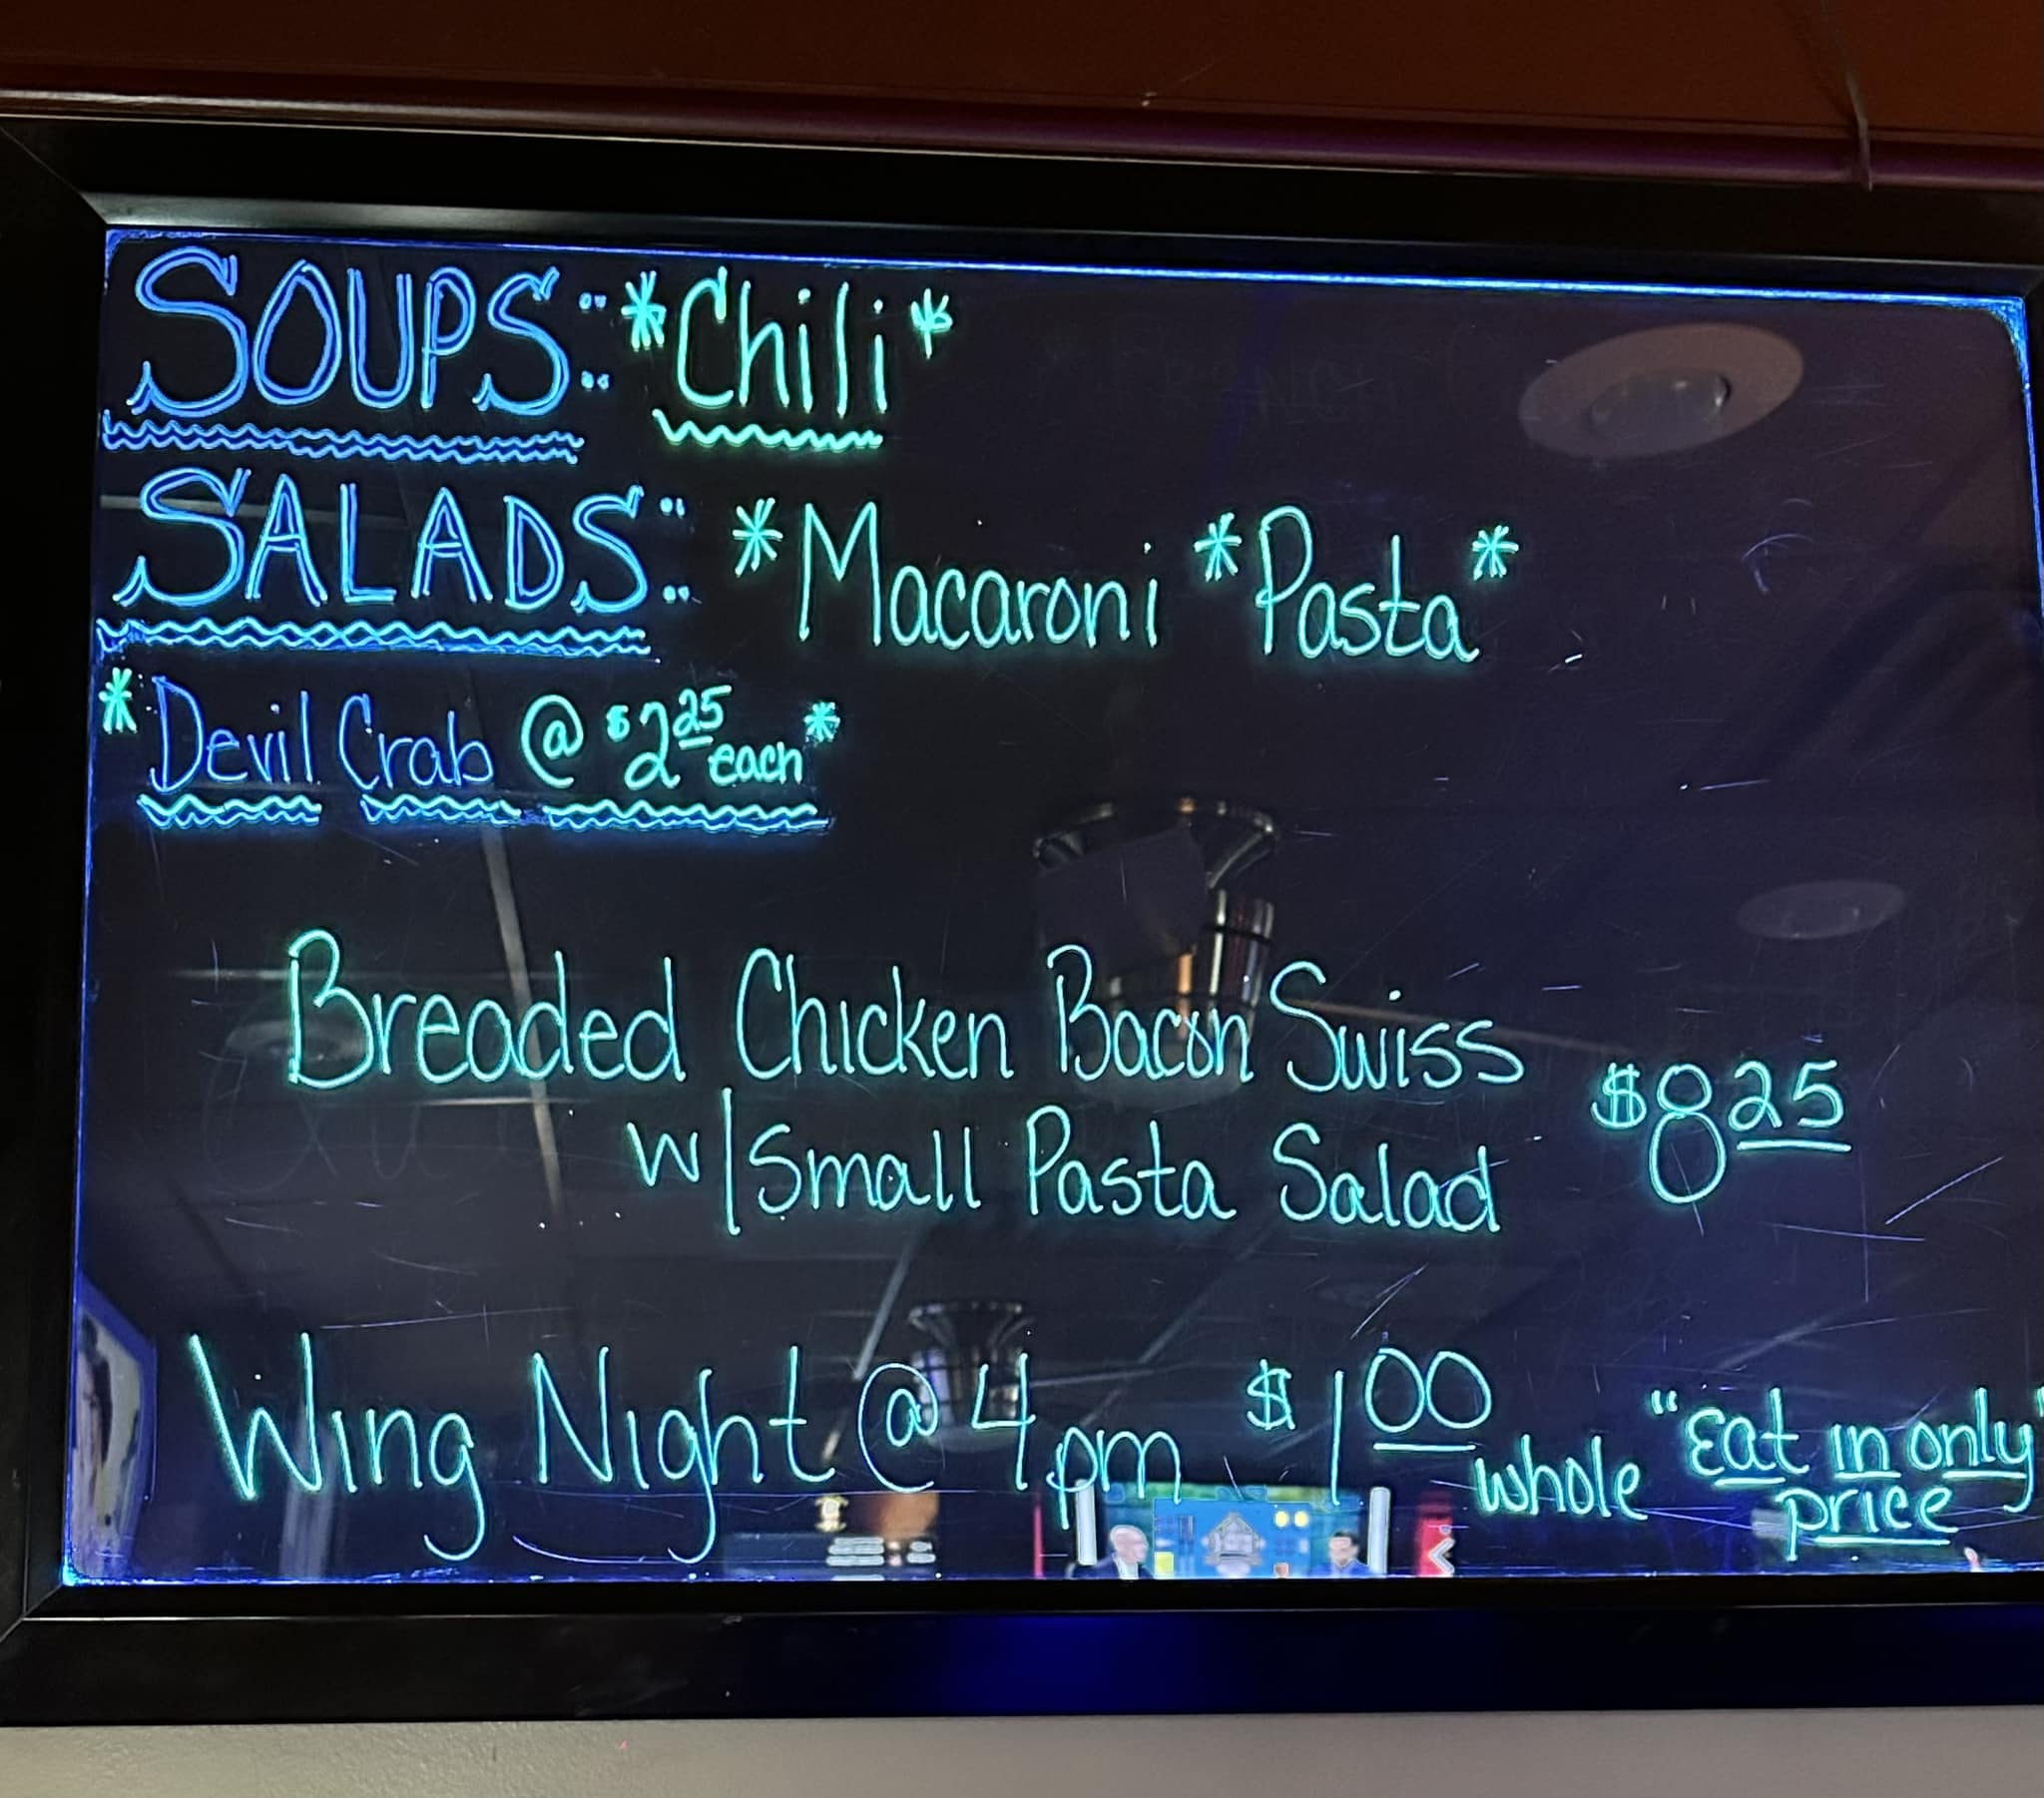 SOUPS: *Chili*
SALADS: *Macaroni *Pasta*
*Devil Crab @ $2.25 each*
Breaded Chicken Bacon Swiss
w/Small Pasta Salad $8.25
Wing Night @ 4pm $1.00 whole "Eat in only"
price